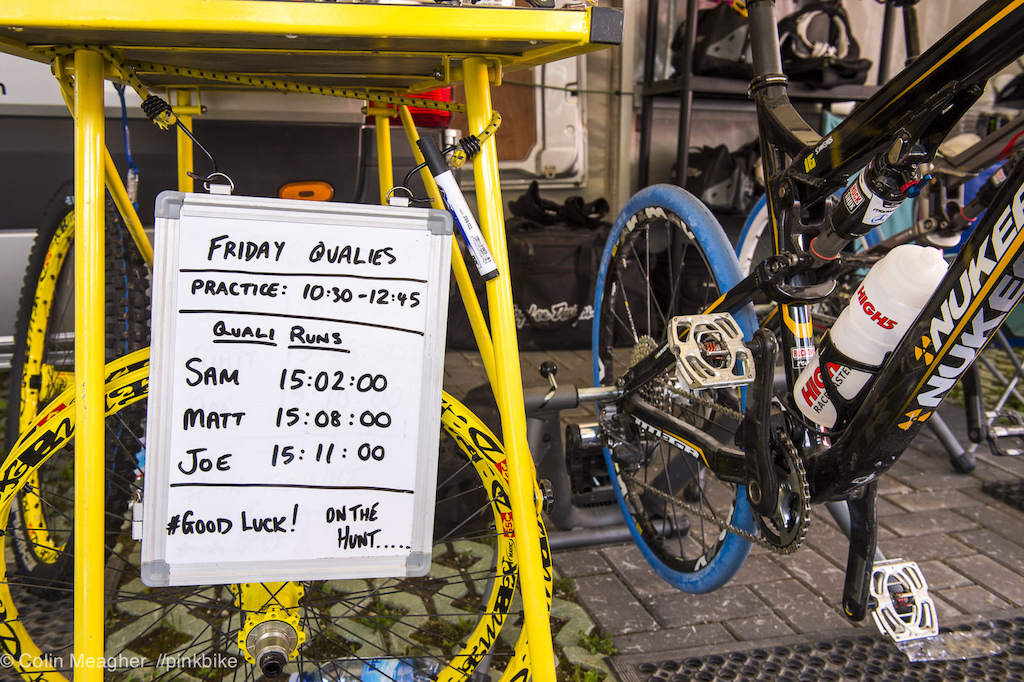 FRIDAY QUALIES
PRACTICE: 10:30-12:45
QUALI RUNS
SAM 15:02:00
MATT 15:08:00
JOE 15:11:00
#GOOD LUCK! ON THE
HUNT.....
HIGH5
NUKE
MEGA
© Colin Meagher //pinkbike